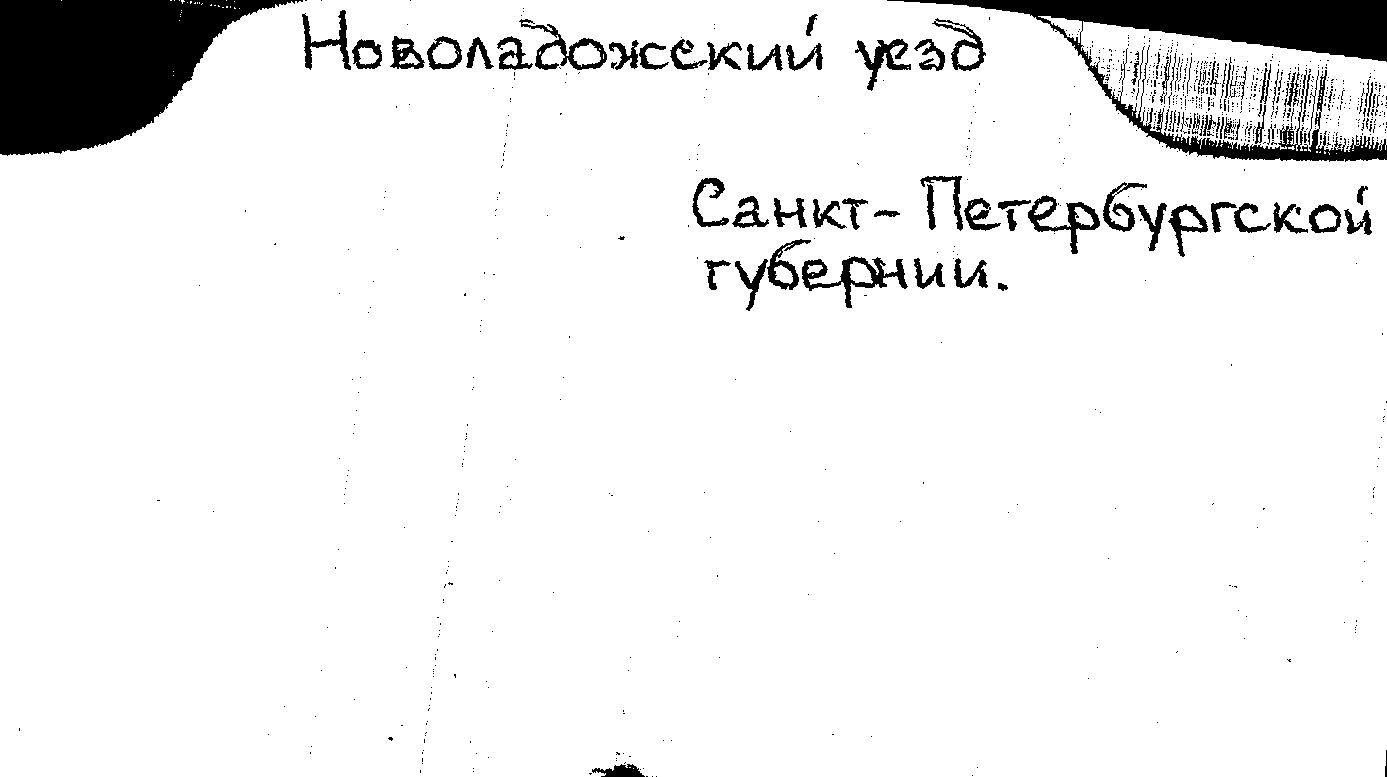 Новоладожский уезд
Санкт-Петербургской
губернии.